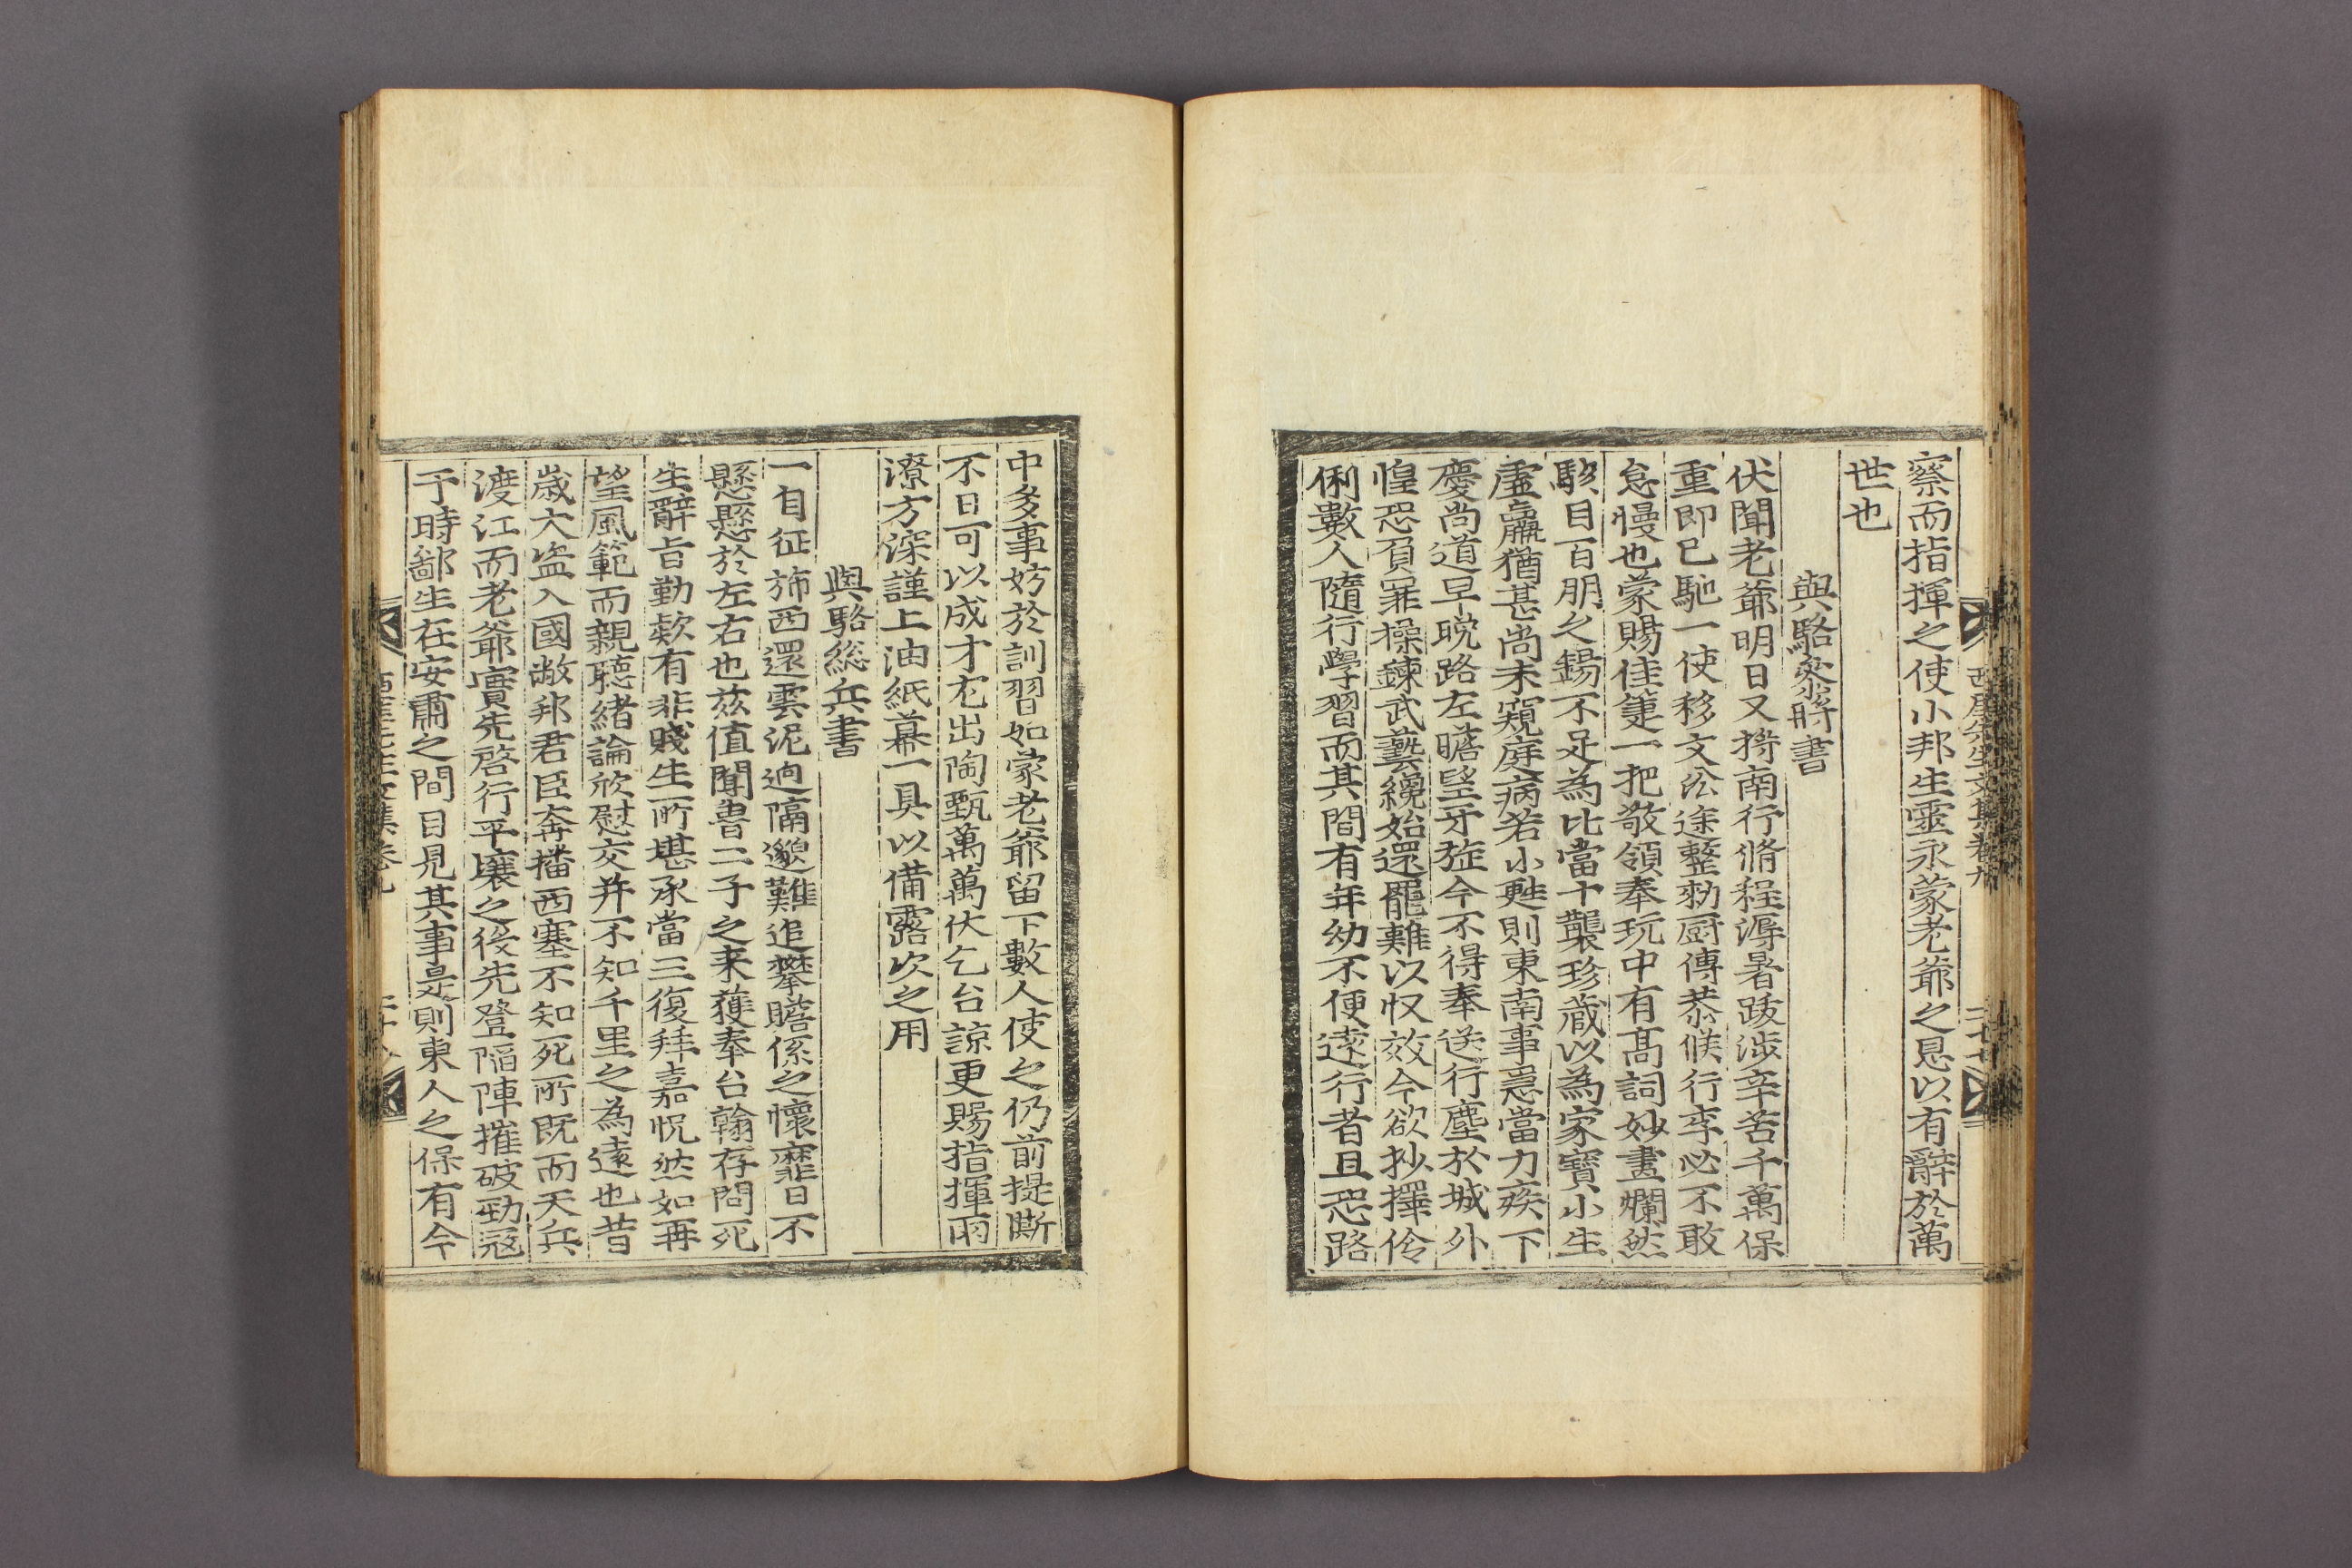 察而指揮之使小邦生靈永蒙老爺之恩以有辭於萬
世也
與駱參將書
伏聞老爺明日又將南行脩程溽暑跋涉辛苦千萬保
重即已馳一使移文沿途整勑厨傳恭候行李必不敢
怠慢也蒙賜佳箑一把敬領奉玩中有高詞妙畫爛然
駭目百朋之錫不足為比當十襲珍藏以為家寶小生
虛羸猶甚尚未窺庭病若小甦則東南事急當力疾下
慶尚道早晩路左瞻望牙旌今不得奉送行塵於城外
惶恐負罪操鍊武藝纔始還罷難以收效今欲抄擇伶
俐數人隨行學習而其間有年幼不便遠行者且恐路
西厓先生文集卷九
二十七
中多事妨於訓習如蒙老爺留下數人使之仍前提撕
不日可以成才尤出陶甄萬萬伏乞台諒更賜指揮雨
潦方深謹上油紙幕一具以備露次之用
與駱総兵書
一自征斾西還雲泥逈隔邈難追攀瞻係之懷靡日不
懸懸於左右也茲值聞書二子之来獲奉台翰存問死
生辭旨勤欵有非賤生所堪承當三復拜嘉怳然如再
望風範而親聽緒論欣慰交并不知千里之為遠也昔
歲大盗入國敝邦君臣奔播西塞不知死所既而天兵
渡江而老爺實先啓行平壤之役先登陷陣摧破勁寇
于時鄙生在安肅之間目見其事是則東人之保有今
西厓先生文集卷九